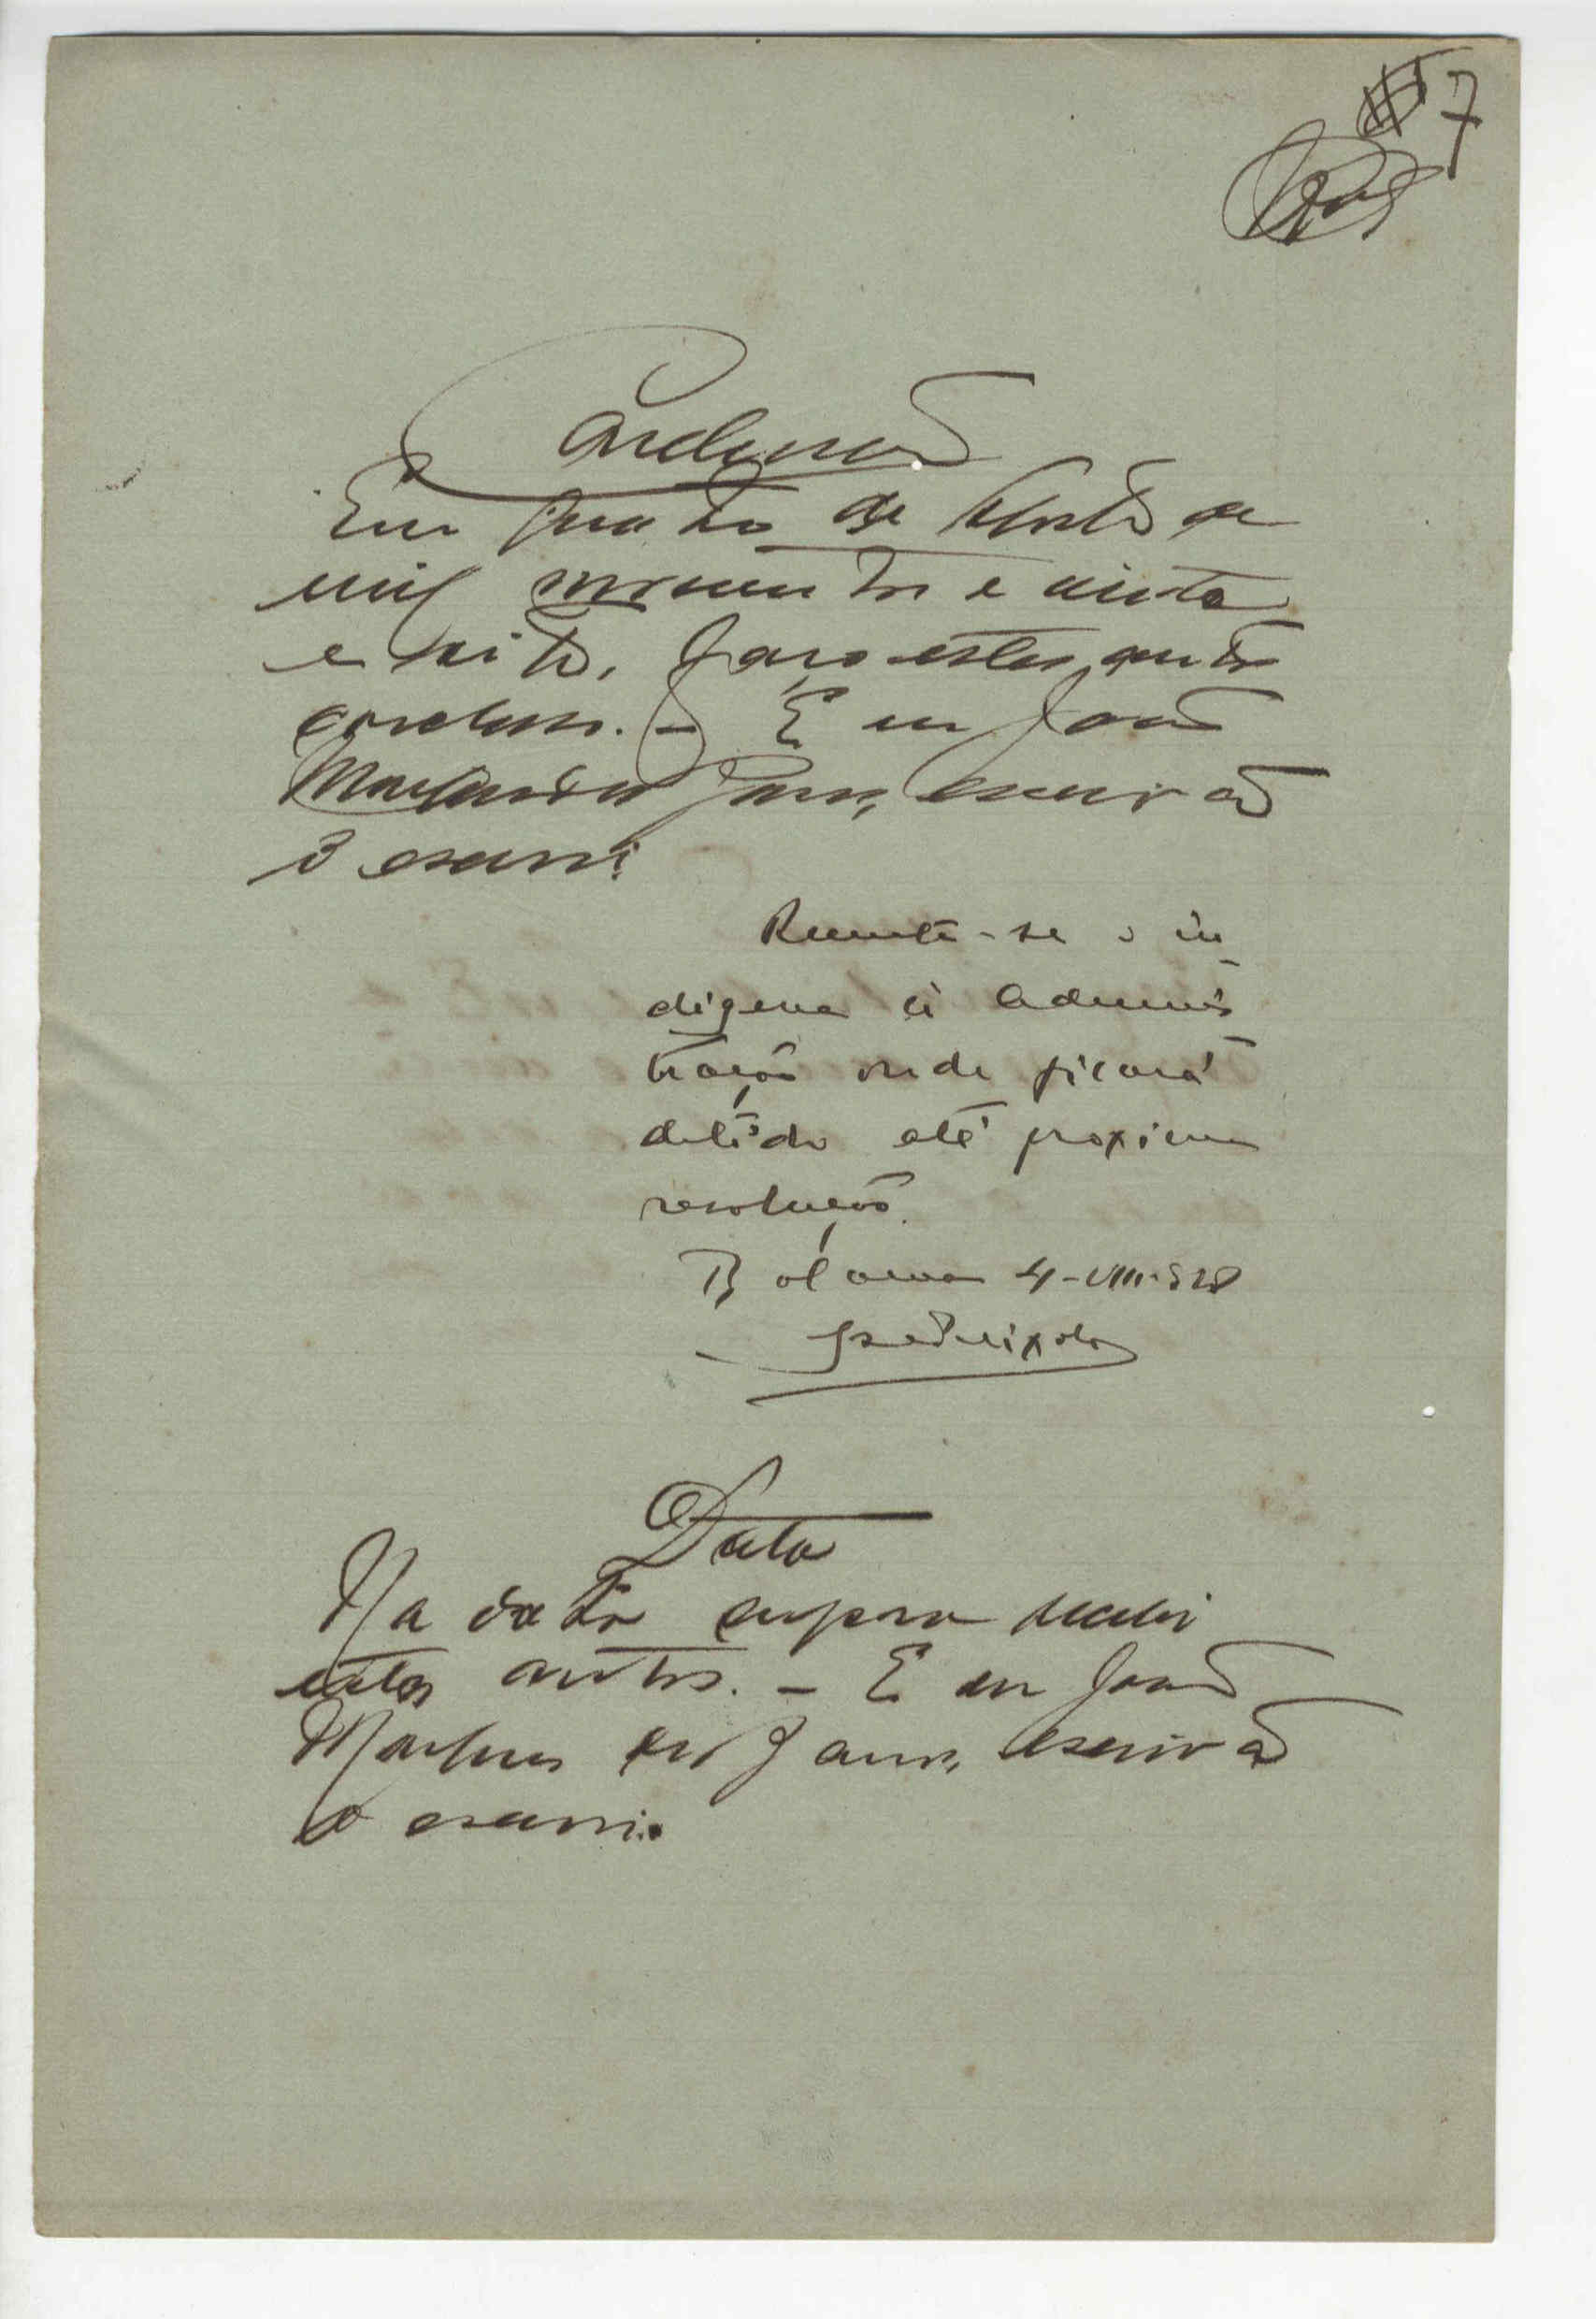 7
Conclusão
Em quatro de Agosto de
mil novecentos e vinte
e oito, faço estes autos
conclusos. - E eu João
escrivão
o escrevi
Remeta-se o in
digena á Adminis
tração onde ficará
detido até proxima
resolução.
Bolama 4-VIII-928
Data
Na data supra recebi
estes autos. - E eu João
escrivão
o escrevi.